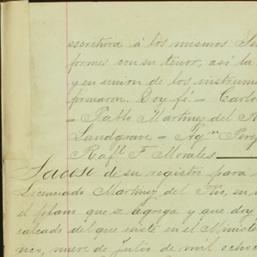 escritura á los mismos
formes con su tenor, así la
y en union de los instrumen
firmaron. Doy fé = Carlos
= Pablo Martinez del
Landgrave =
Raf.l F. Morales.
Sacose de su registro para
Licenciado Martinez del Rio, en
el plano que se agrega y que doy
calcado del que existe en el Ministe
nueve de Julio de mil ocho